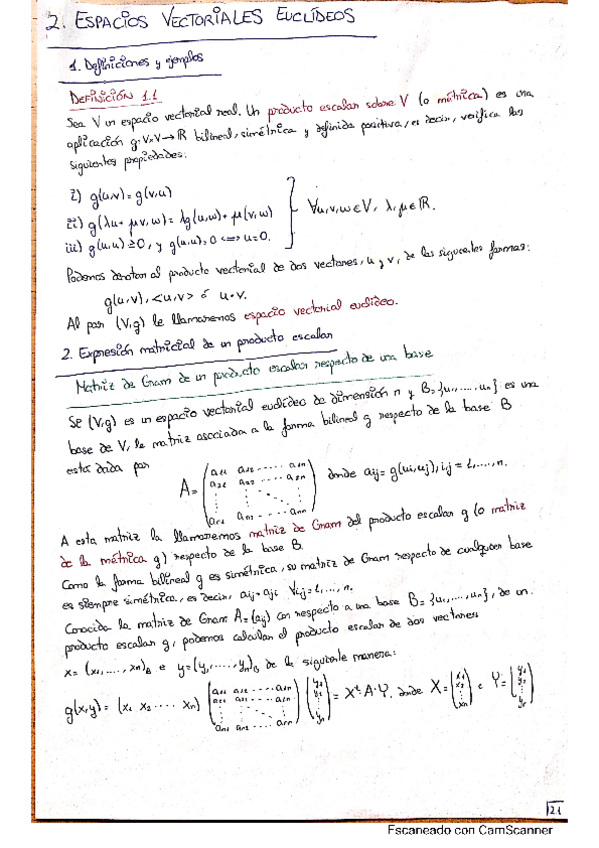 2. ESPACIOS VECTORIALES EUCLÍDEOS
1. Definiciones y ejemplos
DEFINICIÓN 1.1
Sea V un espacio vectorial real. Un producto escalar sobre V (o métrica) es una
aplicación g: V×V → ℝ bilineal, simétrica y definida positiva, es decir, verifica las
siguientes propiedades:
i) g(u,v) = g(v,u)
ii) g(λu+μv,w) = λg(u,w) + μ(v,w)
iii) g(u,u) ≥ 0, y g(u,u) = 0 ⟺ u=0.
∀u,v,w ∈ V, λ,μ ∈ ℝ.
Podemos denotar al producto vectorial de dos vectores, u y v, de las siguientes formas:
g(u,v), <u,v> ó u·v.
Al par (V,g) le llamaremos espacio vectorial euclídeo.
2. Expresión matricial de un producto escalar
Matriz de Gram de un producto escalar respecto de una base
Si (V,g) es un espacio vectorial euclídeo de dimensión n y B={u₁,...,uₙ} es una
base de V, la matriz asociada a la forma bilineal g respecto de la base B
está dada por
A = donde aij = g(ui,uj), i,j = 1,...,n.
A esta matriz la llamaremos matriz de Gram del producto escalar g (o matriz
de la métrica g) respecto de la base B.
Como la forma bilineal g es simétrica, su matriz de Gram respecto de cualquier base
es siempre simétrica, es decir, aij = aji ∀i,j = 1,...,n.
Conocida la matriz de Gram A=(aij) con respecto a una base B={u₁,...,uₙ}, de un
producto escalar g, podemos calcular el producto escalar de dos vectores
x = (x₁,...,xₙ)B e y = (y₁,...,yₙ)B de la siguiente manera:
g(x,y) = (x₁ x₂ ... xₙ) = Xᵗ·A·Y, donde X = (x₁ x₂ ⋮ xₙ) e Y = (y₁ y₂ ⋮ yₙ)
21
Escaneado con CamScanner